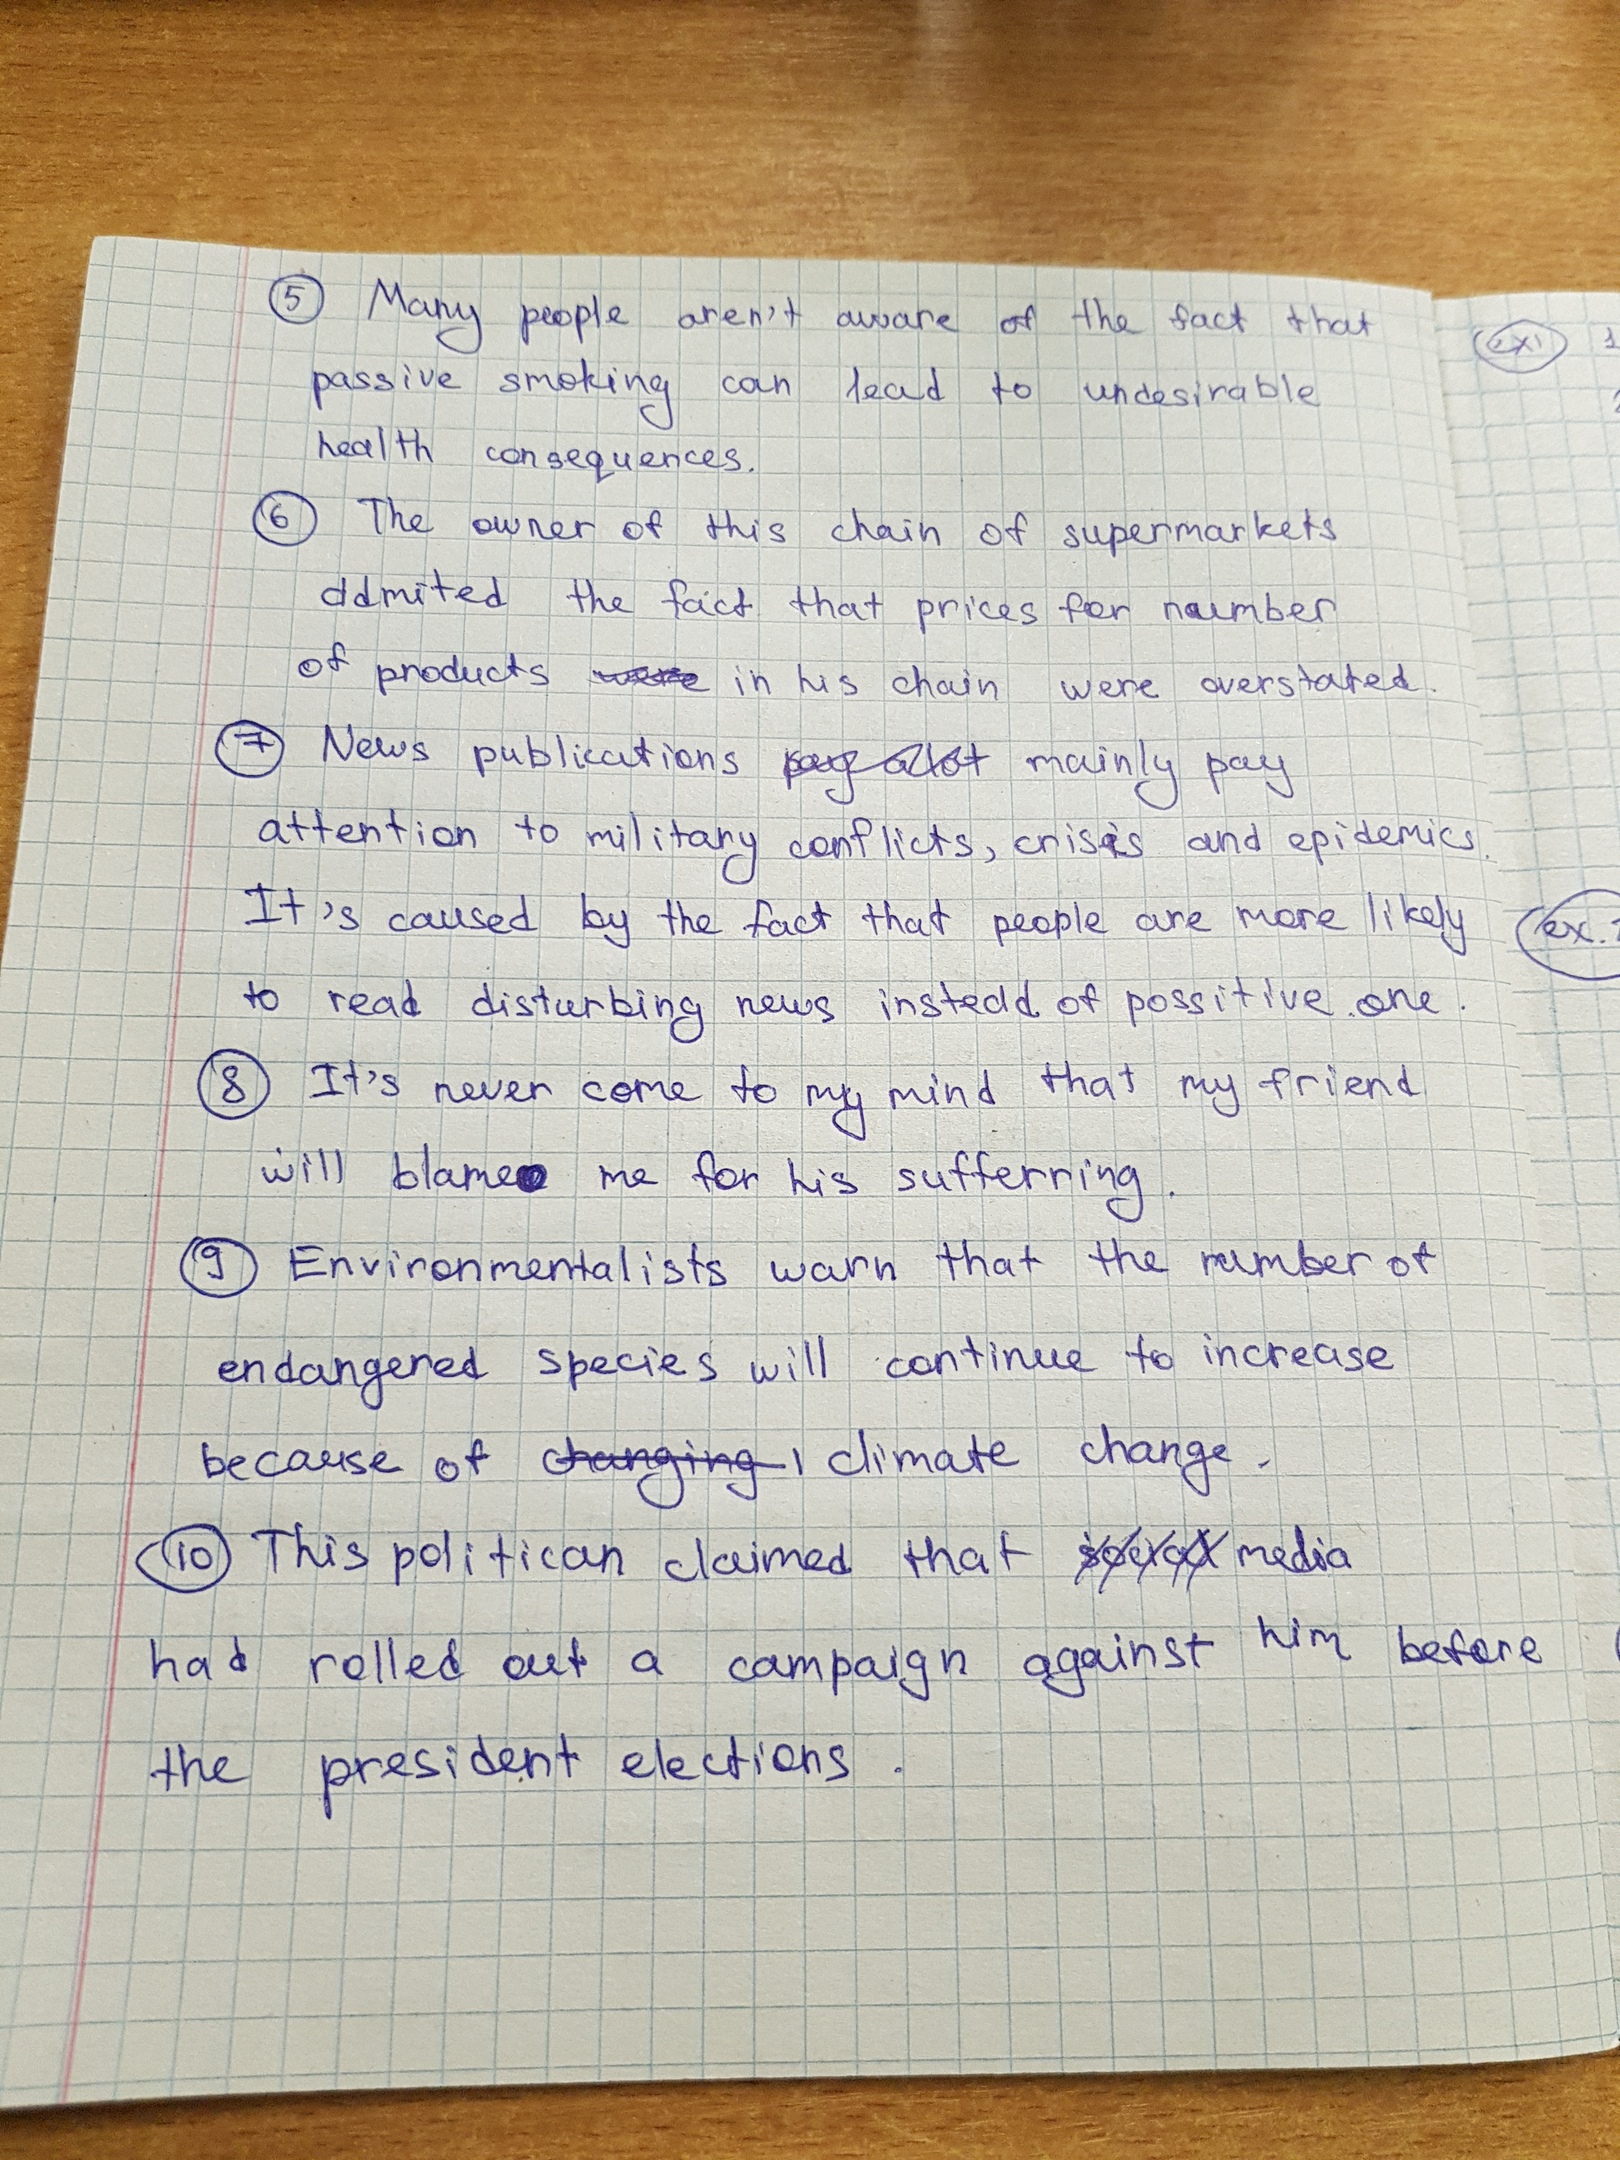 5 Many people aren't aware of the fact that
passive smoking can lead to undesirable
health consequences.
6 The owner of this chain of supermarkets
admited the fact that prices for number
of products were in his chain were overstated.
7 News publications pay alot mainly pay
attention to military conflicts, crisis and epidemics.
It's caused by the fact that people are more likely
to read disturbing news instead of possitive one.
8 It's never come to my mind that my friend
will blame me for his sufferring.
9 Environmentalists warn that the number of
endangered species will continue to increase
because of changing climate change.
10 This politican claimed that social media
had rolled out a campaign against him before
the president elections.
ex1
ex.